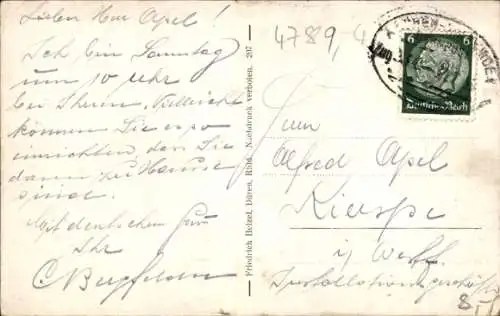 Lieber Herr Apel!
Ich bin Sonntag
um 10 Uhr
bei Ihnen, Vielleicht
können Sie es so
einrichten, das Sie
dann zu Hause
sind.
Mit deutschem Gruß
Ihr
C. Bergfelden
Friedrich Hetzel, Düren, Rhld. Nachdruck verboten. 207
4789,4
6
Deutsches Reich
Herrn
Alfred Apel
Kierspe
i/ Westf.
Installationsgeschäft
8,-